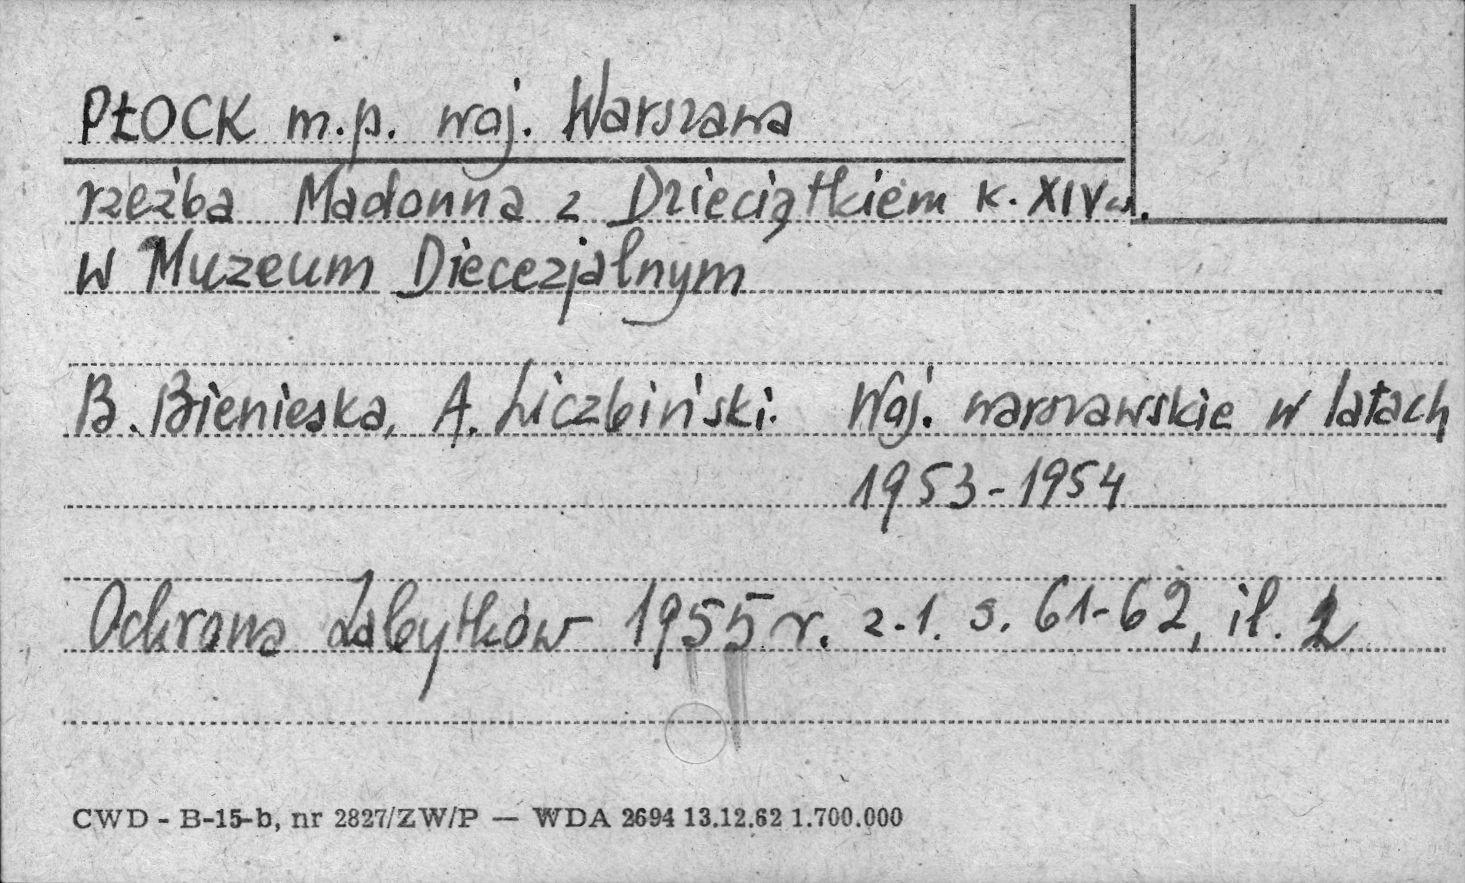 PŁOCK m.p. woj. Warszawa
rzeźba Madonna z Dzieciątkiem k. XIV w.
w Muzeum Diecezjalnym
B. Bienieska, A. Liczbiński: Woj. warszawskie w latach
1953-1954
Ochrona Zabytków 1955 r. z.1. s. 61-62, il. 2
CWD - B-15-b, nr 2827/ZW/P — WDA 2694 13.12.62 1.700.000